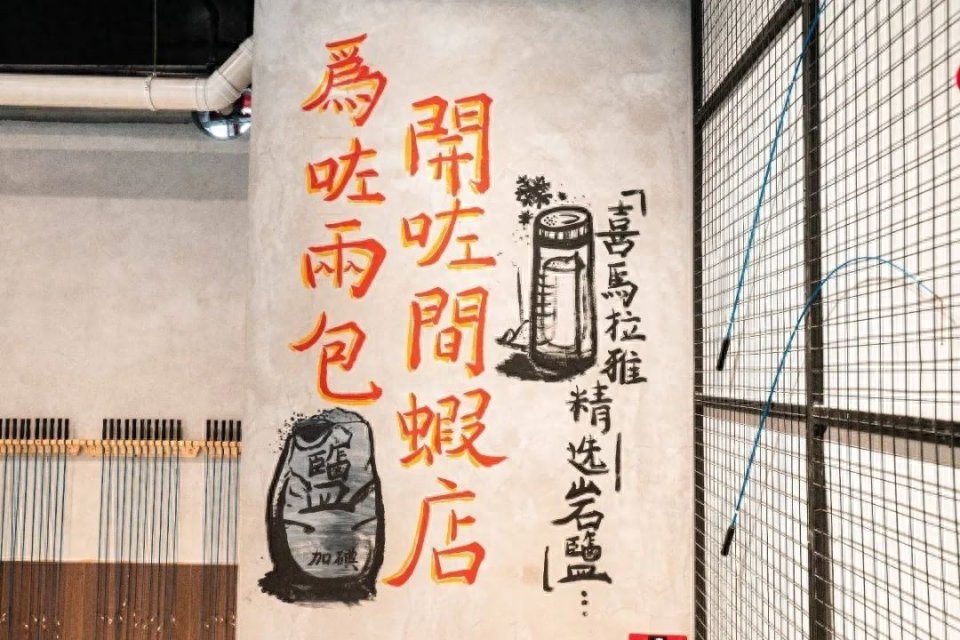 爲咗兩包
鹽
加碘
開咗間蝦店
「喜馬拉雅
精选岩鹽」...